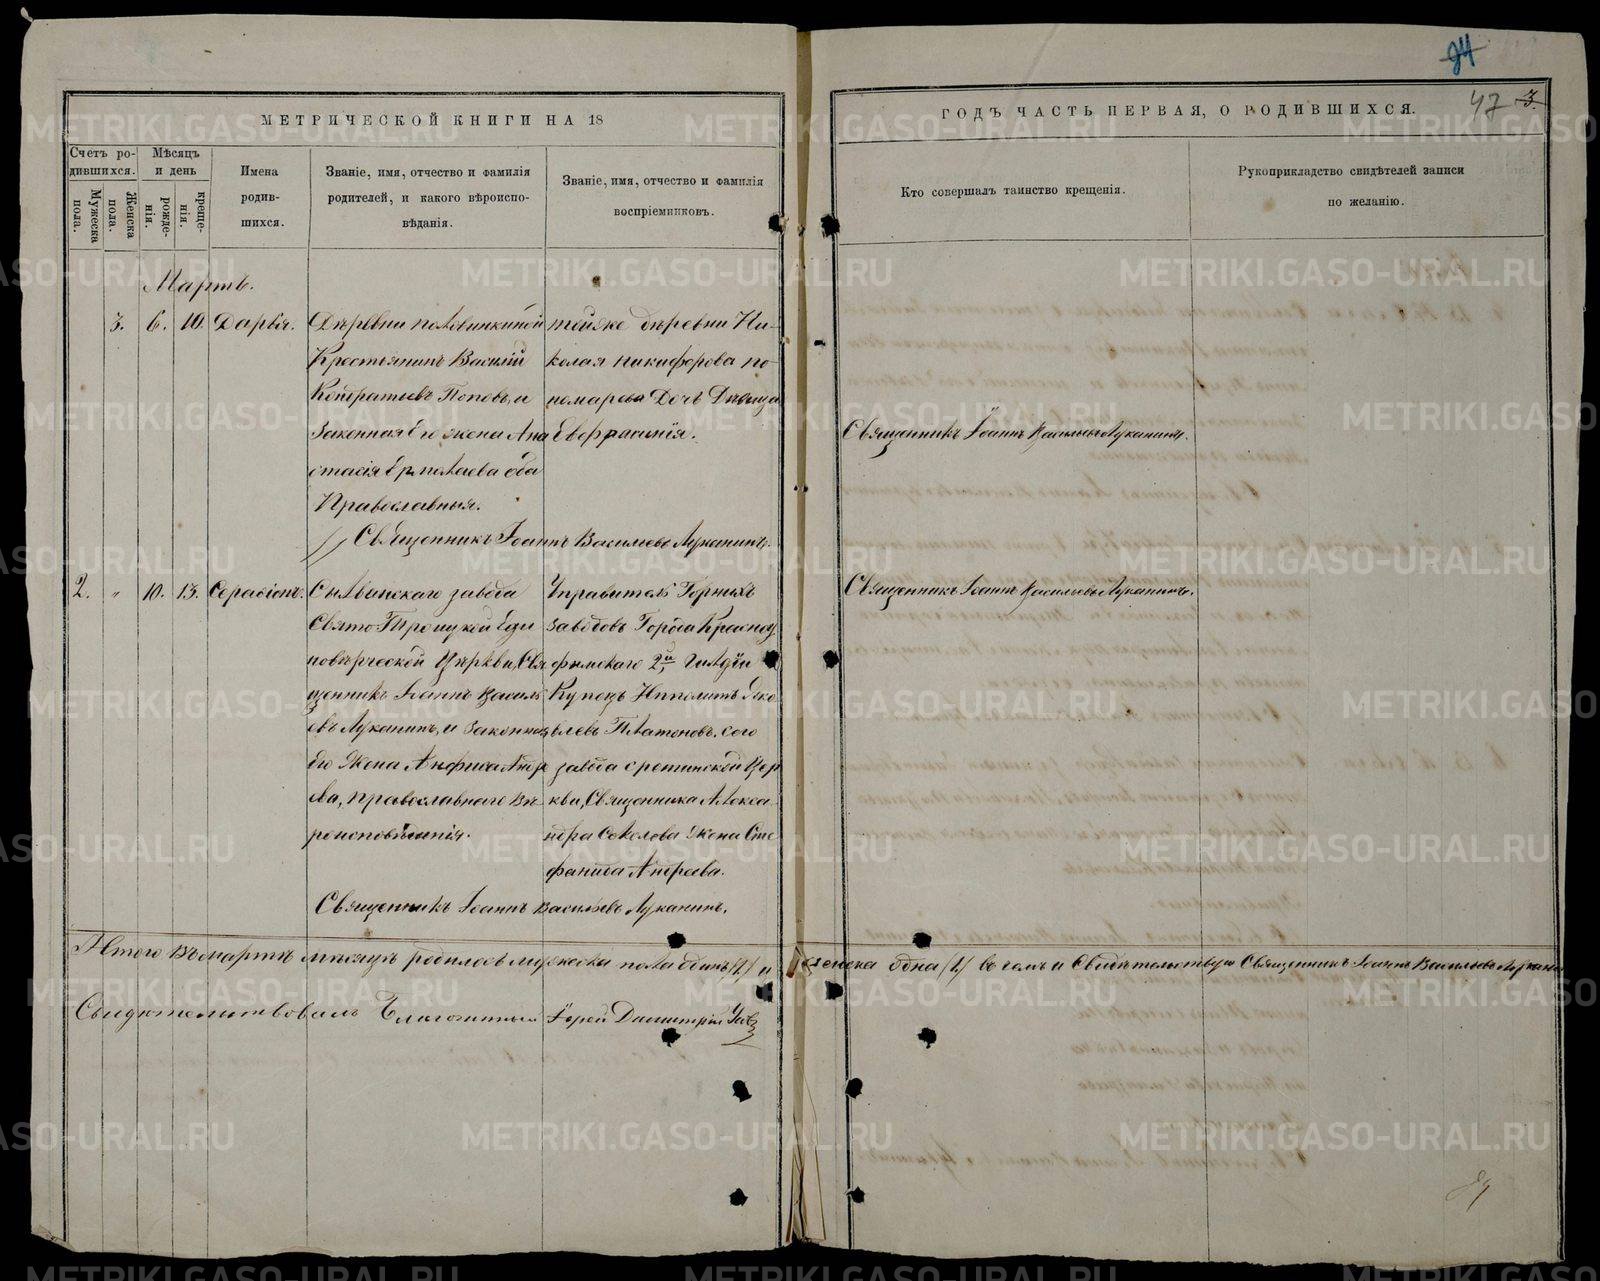 94
47 3.
МЕТРИЧЕСКОЙ КНИГИ НА 18
ГОДЪ ЧАСТЬ ПЕРВАЯ, О РОДИВШИХСЯ.
Счетъ родившихся.
Мужеска пола.
Женска пола.
Мѣсяцъ и день
рожденія.
крещенія.
Имена родившихся.
Званіе, имя, отчество и фамилія
родителей, и какого вѣроиспо-
вѣданія.
Званіе, имя, отчество и фамилія
воспріемниковъ.
Кто совершалъ таинство крещенія.
Рукоприкладство свидѣтелей записи
по желанію.
Мартъ.
3. 6. 10. Дарьія.
Деревни половинкиной
Крестьянинъ Василій
Кондратьевъ Поповъ, и
Законная его жена Ана
стасія Ермолаева оба
Православныя.
тойже деревни Ни-
колая никифорова по-
номарева Дочь Дѣвица
Евфрасинія.
Священникъ Іоаннъ Васильевъ Луканинъ.
Священникъ Іоаннъ Васильевъ Луканинъ.
2. „ 10. 13. Серапіонъ.
Сылвинскаго завода
Свято Троицкой Еди
новѣрческой Церкви, Свя
щенникъ Іоаннъ Василь
евъ Луканинъ, и законная
его Жена Анфиса
ла, православнаго вѣ-
роисповѣданія.
Управитель Горныхъ
заводовъ Города Красноу
фимскаго 2й гильдіи
Купецъ Ипполитъ Яко
влевъ Платоновъ. сего
завода сретинской Цер
кви, Священника Алекса
ндра Соколова Жена Сте
фанида Андреева.
Священникъ Іоаннъ Васильевъ Луканинъ.
Священникъ Іоаннъ Васильевъ Луканинъ.
Итого въ мартѣ мѣсяцѣ родилось мужеска пола одинъ /1/ и женска одна /1/ въ чемъ и Свидѣтельствую Священникъ Іоаннъ Васильевъ Луканинъ
Свидѣтельствовалъ Благочинный Іерей Димитрій
METRIKI.GASO-URAL.RU